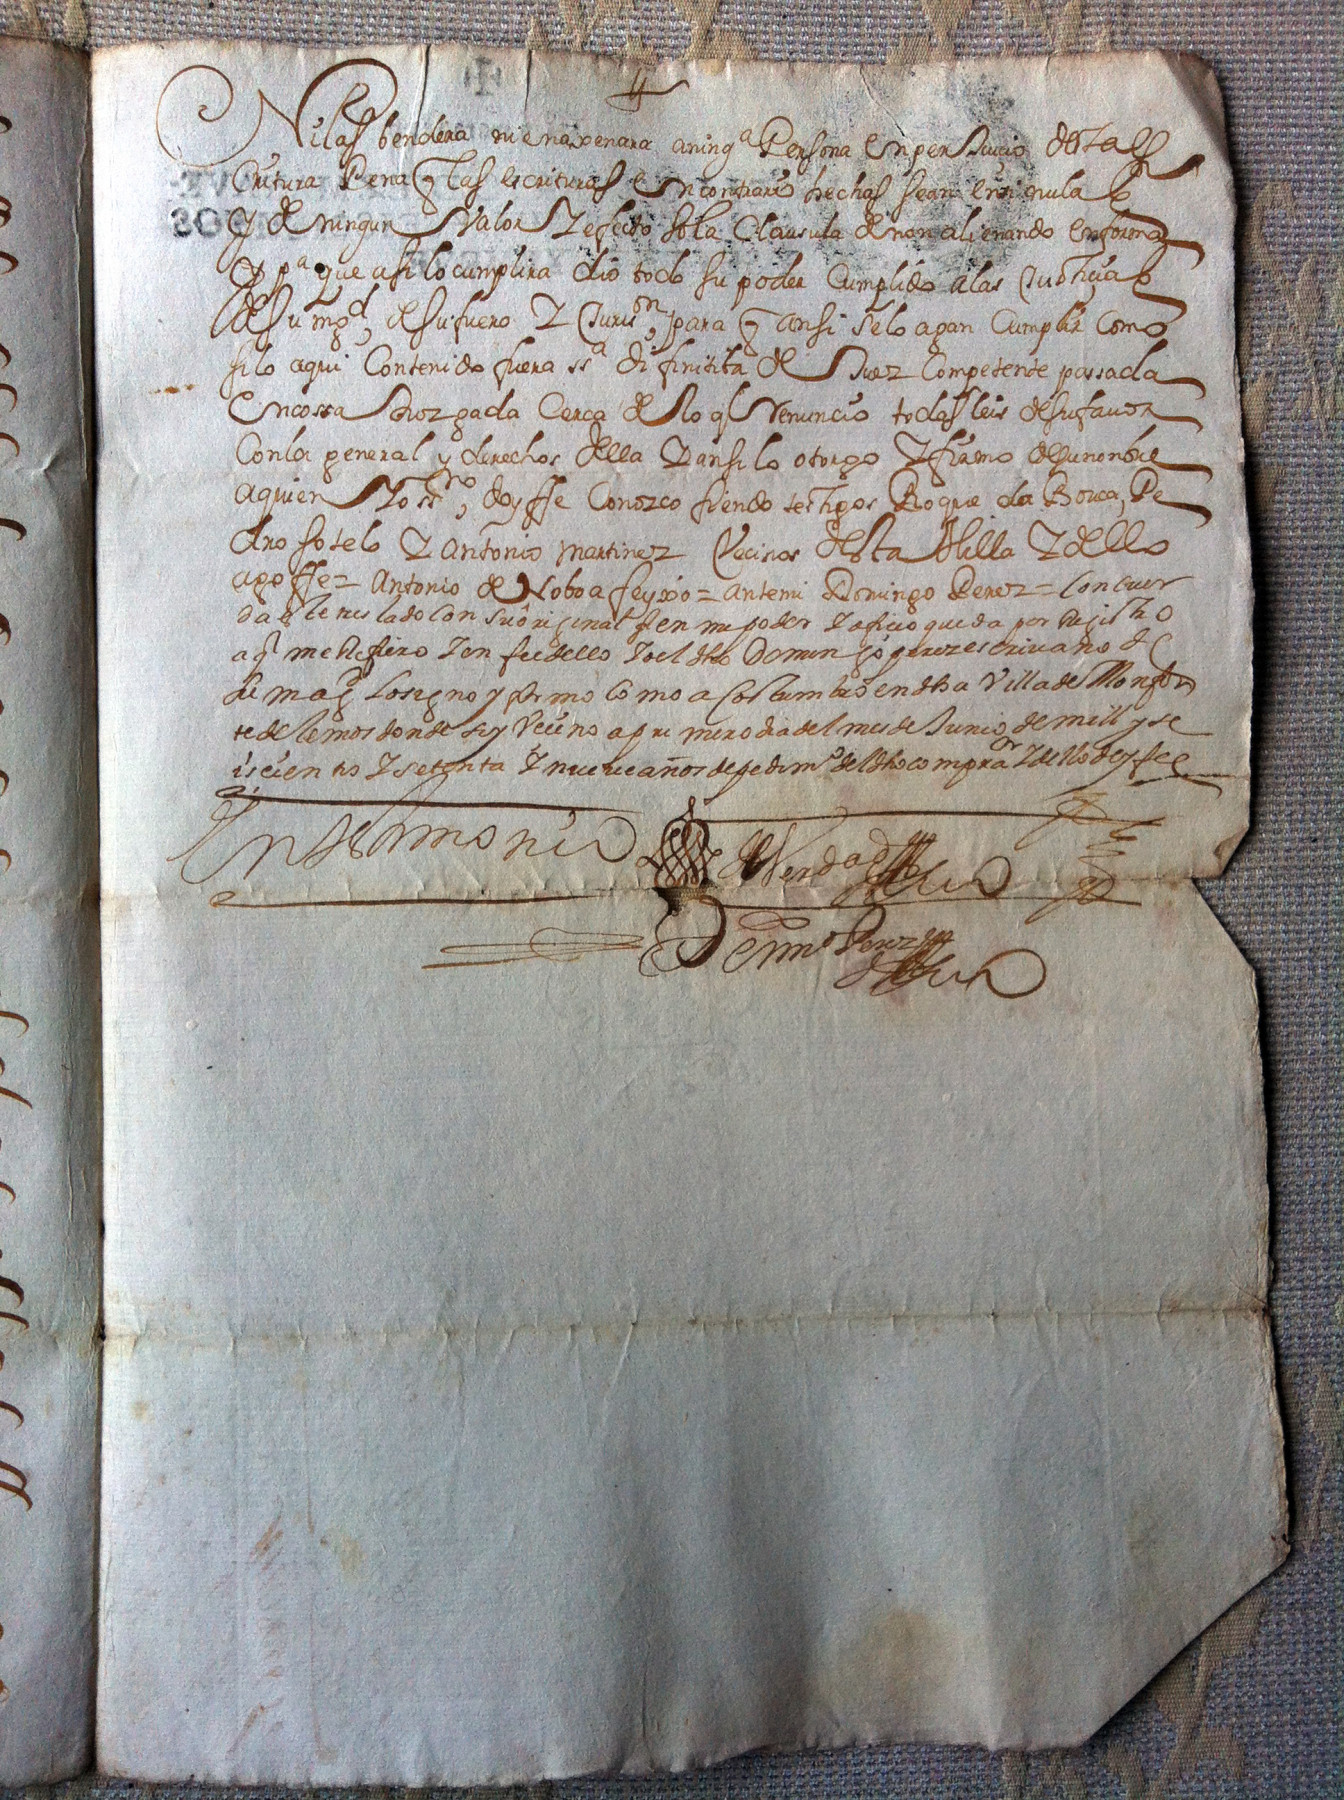 Ni las bendera ni enaxenara aning^a Persona en perJuicio desta es
Critura Pena q las escrituras q en contrario hechas sean ensi nulas
y de ningun Valor Y efecto so la Clausula de non alienando en forma
Y p^a que asi lo cumplira dio todo su poder Cumplido a las Justicias
de su mg^d, de su fuero Y Juris^on, para q ansi se lo agan Cumplir Como
si lo aqui Contenido fuera ss^a difinitiba de Juez Competente passada
en cossa Juozgada Cerca de lo q^l Renuncio todas leis de su fauor
Con la general y derechos della Y ansi lo otorgo Y firmo de su nonbre
a quien Yo ss^no, doy ffe Conozco siendo testigos Roque da Bouça, Pe
dro sotelo Y antonio martinez Vecinos desta Villa Y dello
ago ffe = Antonio de Noboa feyxoo = ante mi Domingo Perez = Concuer
da este treslado con su original q en mi poder Y oficio queda por Registro
a q^l me Refiero Y en fee dello Yo el dho Domingo perez escriuano de
su mag^d lo signo y firmo como acostumbro en dha Villa de Monfor
te de lemos donde soy Vecino a primero dia del mes de Junio de mill y se
iscientos Y setenta Y nueue años de pedim^o del dho comprador Y dello doy fee
En testimonio de Verdad
Dom^o Perez
DOS